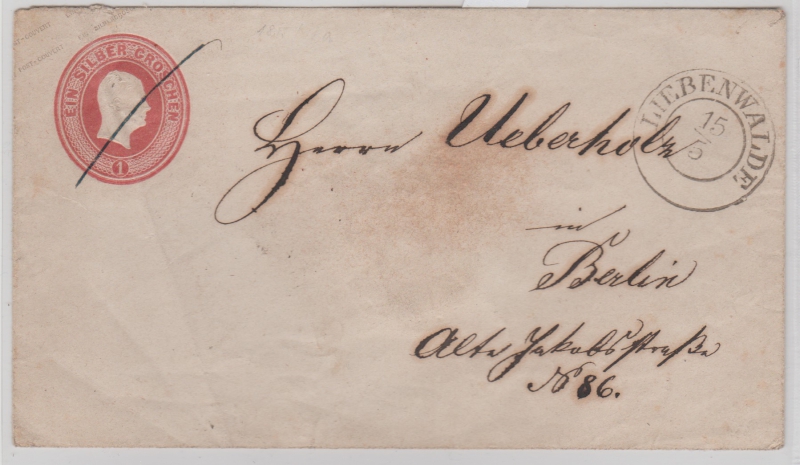 EIN SILBER GROSCHEN
1
LIEBENWALDE
15
5
Herrn Ueberholz
in
Berlin
Alte Jakobsstraße
No 86.